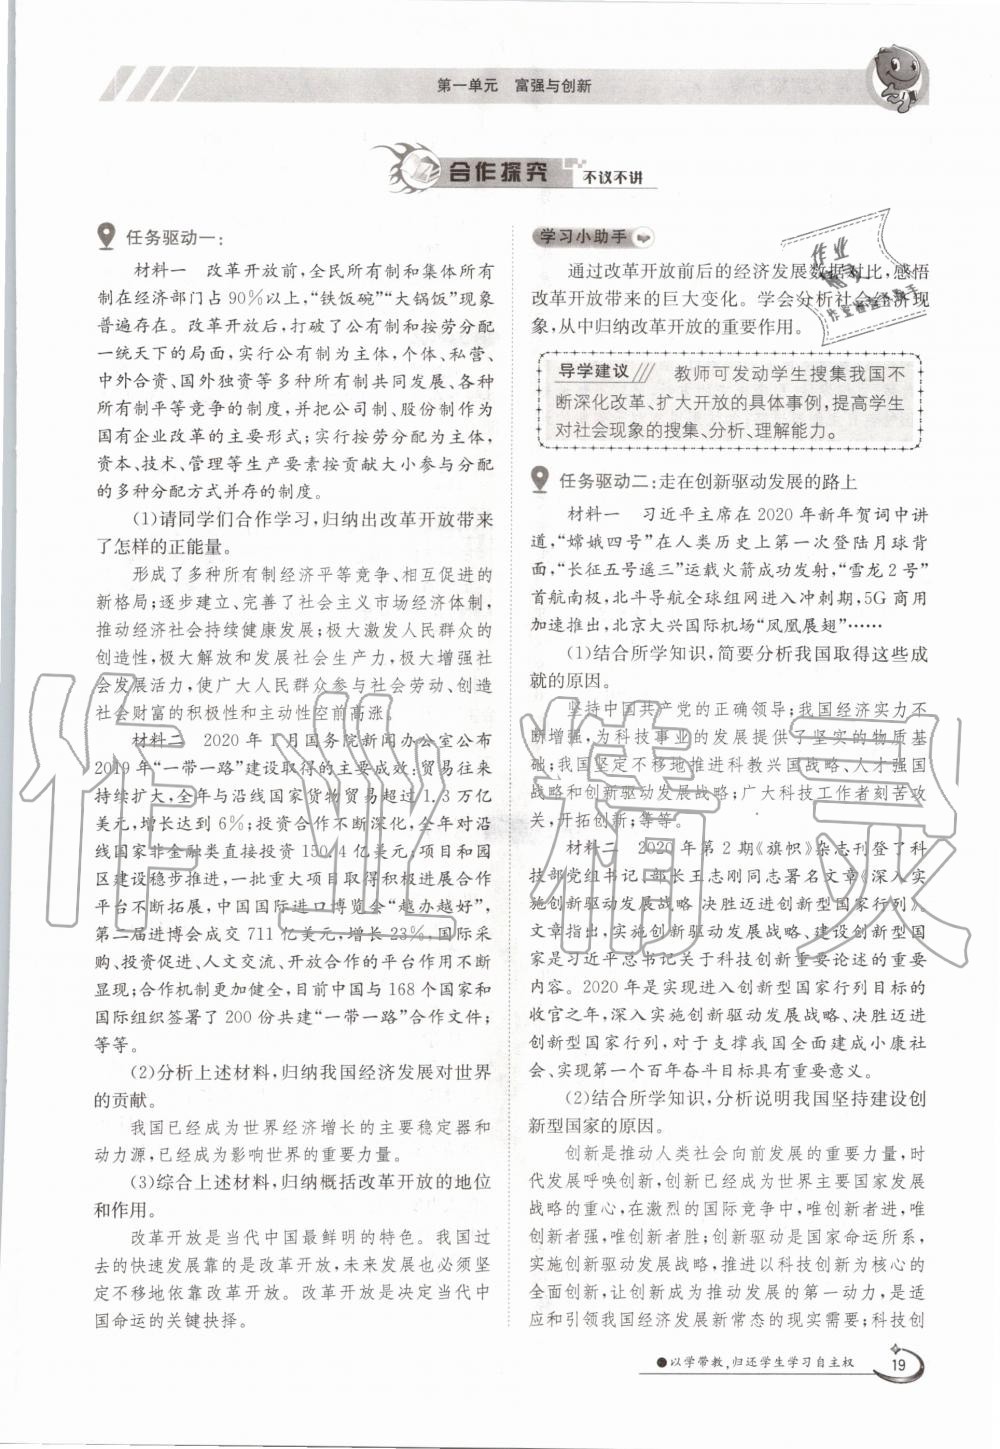 第一单元 富强与创新
合作探究 不议不讲
任务驱动一:
材料一 改革开放前,全民所有制和集体所有
制在经济部门占90%以上,“铁饭碗”“大锅饭”现象
普遍存在。改革开放后,打破了公有制和按劳分配
一统天下的局面,实行公有制为主体,个体、私营、
中外合资、国外独资等多种所有制共同发展、各种
所有制平等竞争的制度,并把公司制、股份制作为
国有企业改革的主要形式;实行按劳分配为主体,
资本、技术、管理等生产要素按贡献大小参与分配
的多种分配方式并存的制度。
(1)请同学们合作学习,归纳出改革开放带来
了怎样的正能量。
形成了多种所有制经济平等竞争、相互促进的
新格局;逐步建立、完善了社会主义市场经济体制,
推动经济社会持续健康发展;极大激发人民群众的
创造性,极大解放和发展社会生产力,极大增强社
会发展活力,使广大人民群众参与社会劳动、创造
社会财富的积极性和主动性空前高涨。
材料二 2020年1月国务院新闻办公室公布
2019年“一带一路”建设取得的主要成效:贸易往来
持续扩大,全年与沿线国家货物贸易超过1.3万亿
美元,增长达到6%;投资合作不断深化,全年对沿
线国家非金融类直接投资150.4亿美元;项目和园
区建设稳步推进,一批重大项目取得积极进展合作
平台不断拓展,中国国际进口博览会“越办越好”,
第二届进博会成交711亿美元,增长23%,国际采
购、投资促进、人文交流、开放合作的平台作用不断
显现;合作机制更加健全,目前中国与168个国家和
国际组织签署了200份共建“一带一路”合作文件;
等等。
(2)分析上述材料,归纳我国经济发展对世界
的贡献。
我国已经成为世界经济增长的主要稳定器和
动力源,已经成为影响世界的重要力量。
(3)综合上述材料,归纳概括改革开放的地位
和作用。
改革开放是当代中国最鲜明的特色。我国过
去的快速发展靠的是改革开放,未来发展也必须坚
定不移地依靠改革开放。改革开放是决定当代中
国命运的关键抉择。
学习小助手
通过改革开放前后的经济发展数据对比,感悟
改革开放带来的巨大变化。学会分析社会经济现
象,从中归纳改革开放的重要作用。
导学建议 教师可发动学生搜集我国不
断深化改革、扩大开放的具体事例,提高学生
对社会现象的搜集、分析、理解能力。
任务驱动二:走在创新驱动发展的路上
材料一 习近平主席在2020年新年贺词中讲
道,“嫦娥四号”在人类历史上第一次登陆月球背
面,“长征五号遥三”运载火箭成功发射,“雪龙2号”
首航南极,北斗导航全球组网进入冲刺期,5G商用
加速推出,北京大兴国际机场“凤凰展翅”……
(1)结合所学知识,简要分析我国取得这些成
就的原因。
坚持中国共产党的正确领导;我国经济实力不
断增强,为科技事业的发展提供了坚实的物质基
础;我国坚定不移地推进科教兴国战略、人才强国
战略和创新驱动发展战略;广大科技工作者刻苦攻
关,开拓创新;等等。
材料二 2020年第2期《旗帜》杂志刊登了科
技部党组书记、部长王志刚同志署名文章《深入实
施创新驱动发展战略 决胜迈进创新型国家行列》。
文章指出,实施创新驱动发展战略、建设创新型国
家是习近平总书记关于科技创新重要论述的重要
内容。2020年是实现进入创新型国家行列目标的
收官之年,深入实施创新驱动发展战略、决胜迈进
创新型国家行列,对于支撑我国全面建成小康社
会、实现第一个百年奋斗目标具有重要意义。
(2)结合所学知识,分析说明我国坚持建设创
新型国家的原因。
创新是推动人类社会向前发展的重要力量,时
代发展呼唤创新,创新已经成为世界主要国家发展
战略的重心,在激烈的国际竞争中,唯创新者进,唯
创新者强,唯创新者胜;创新驱动是国家命运所系,
实施创新驱动发展战略,推进以科技创新为核心的
全面创新,让创新成为推动发展的第一动力,是适
应和引领我国经济发展新常态的现实需要;科技创
●以学带教,归还学生学习自主权
19
作业精灵